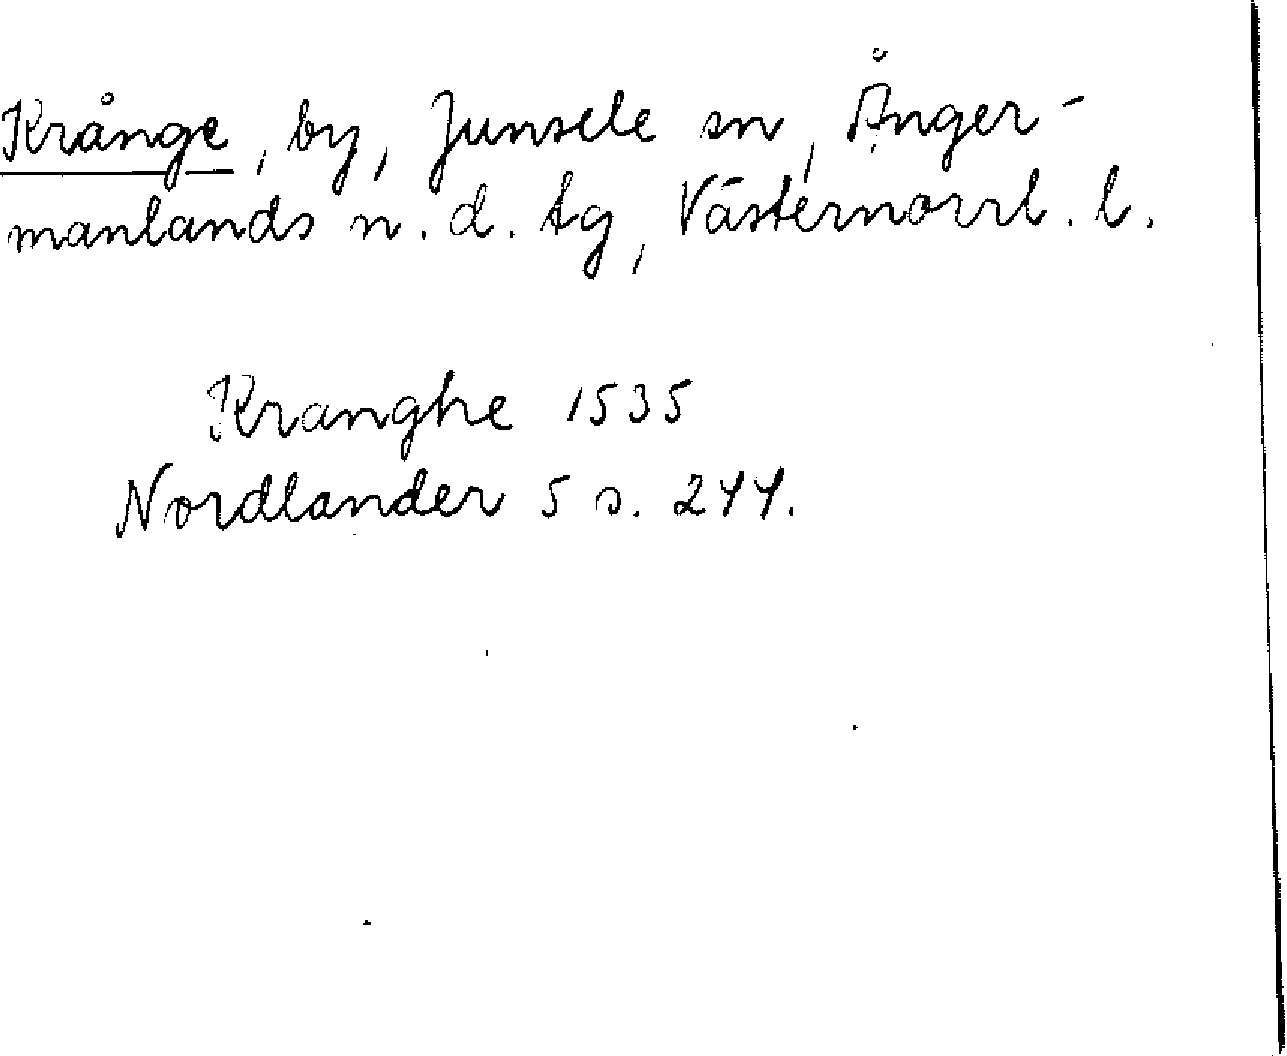 Krånge, by, Junsele sn, Ånger-
manlands n. d. tg, Västernorrl. l.
Kranghe 1535
Nordlander 5 s. 244.